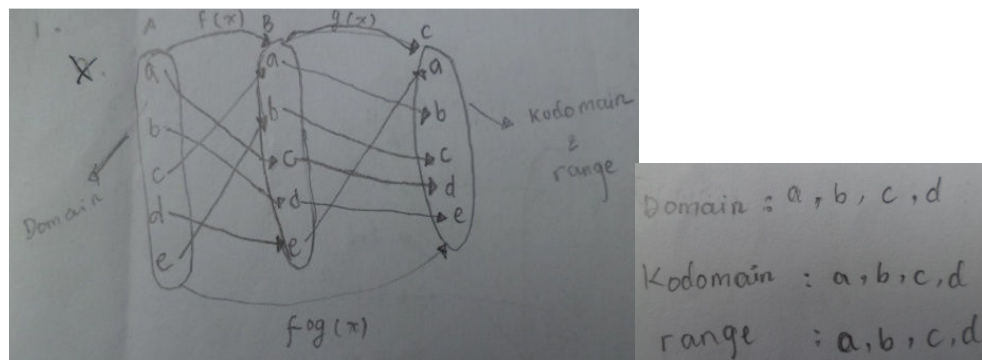 1.
A f(x) B g(x) C
a a a
b b b
c c c
d d d
e e e
Domain
Kodomain
&
range
fog(x)
Domain : a, b, c, d
Kodomain : a, b, c, d
range : a, b, c, d